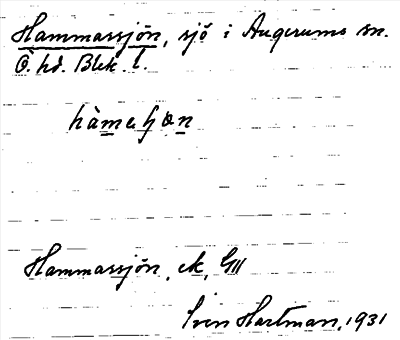 Hammarsjön, sjö i Augerums sn.
Ö. hd. Blek. l.
hàmeʃøn
Hammarsjön, ek, GII
Sven Hartman, 1931